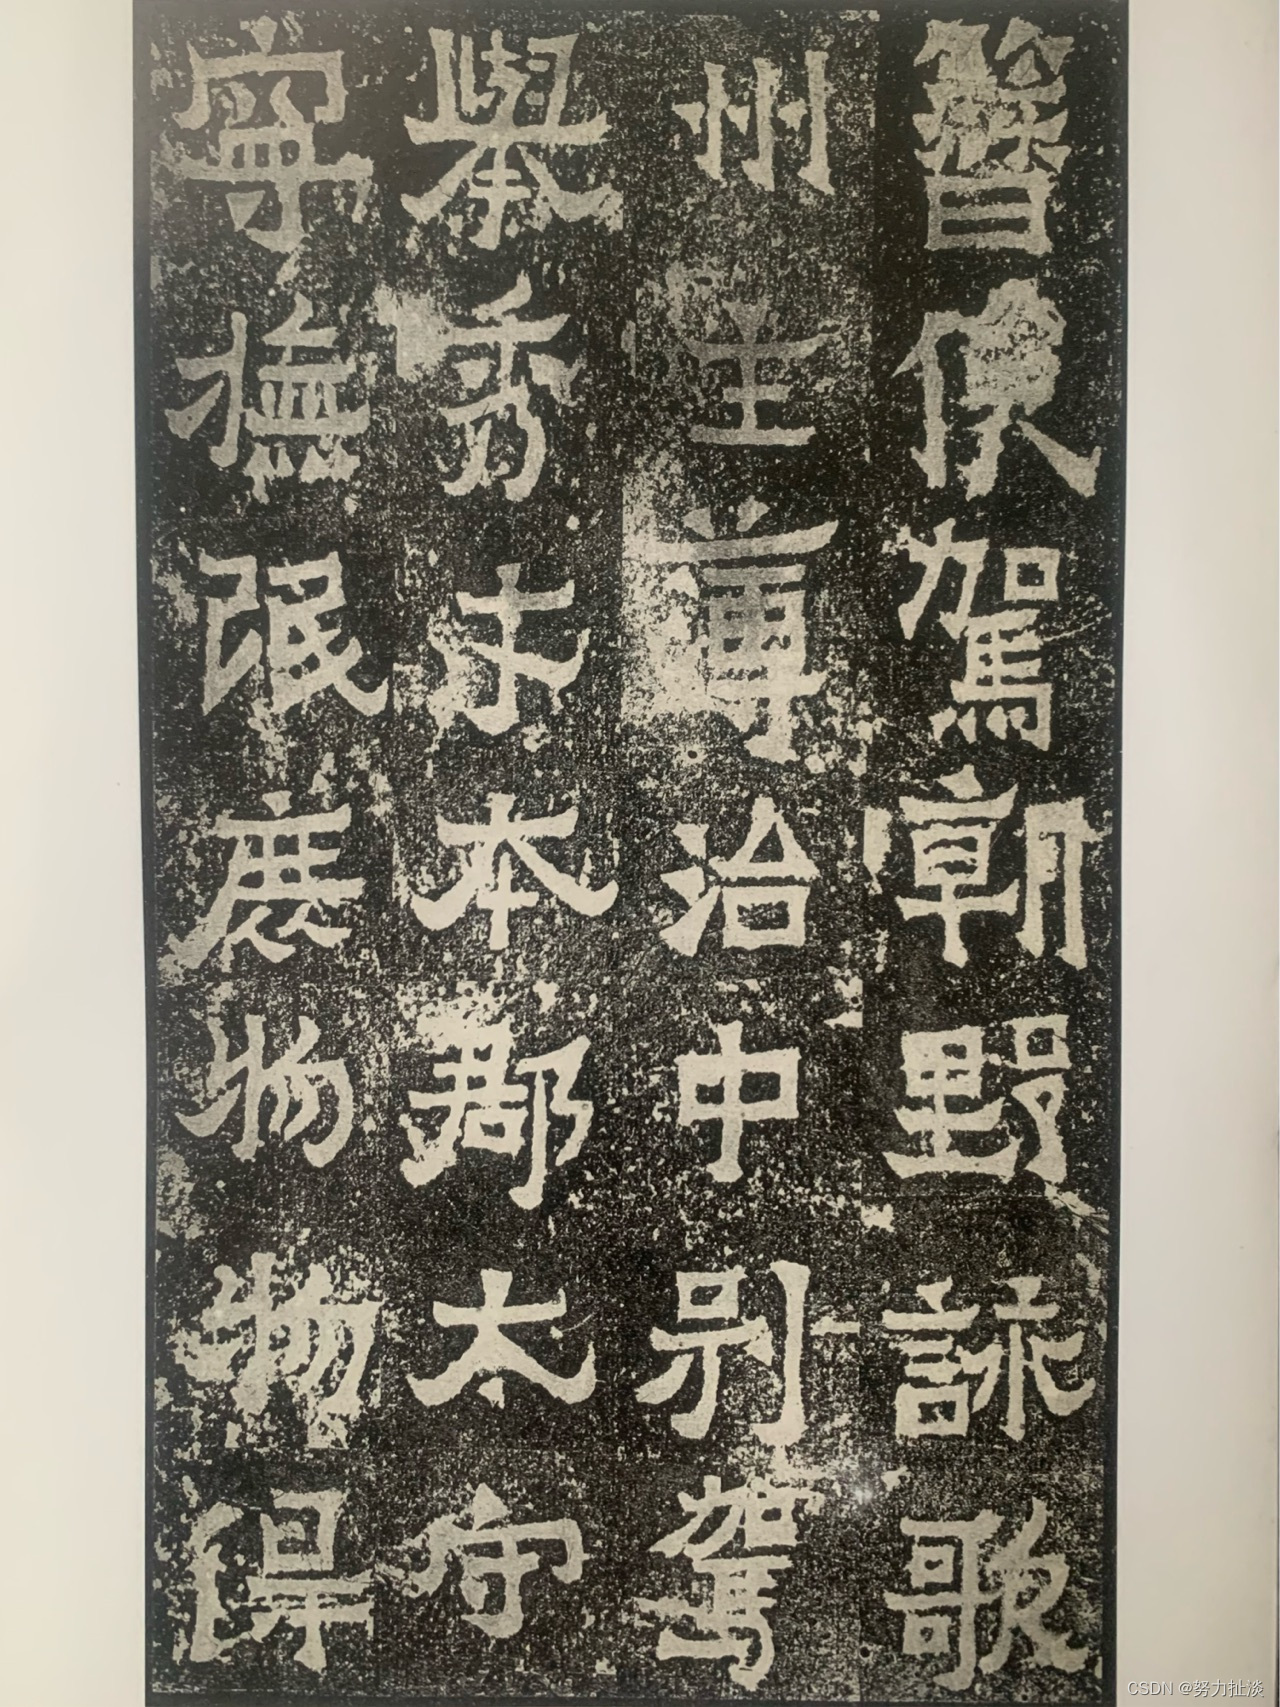 簪俟駕朝野詠歌
州主簿治中別駕
舉秀才本郡太守
寧撫氓庶物物得
CSDN @努力扯淡